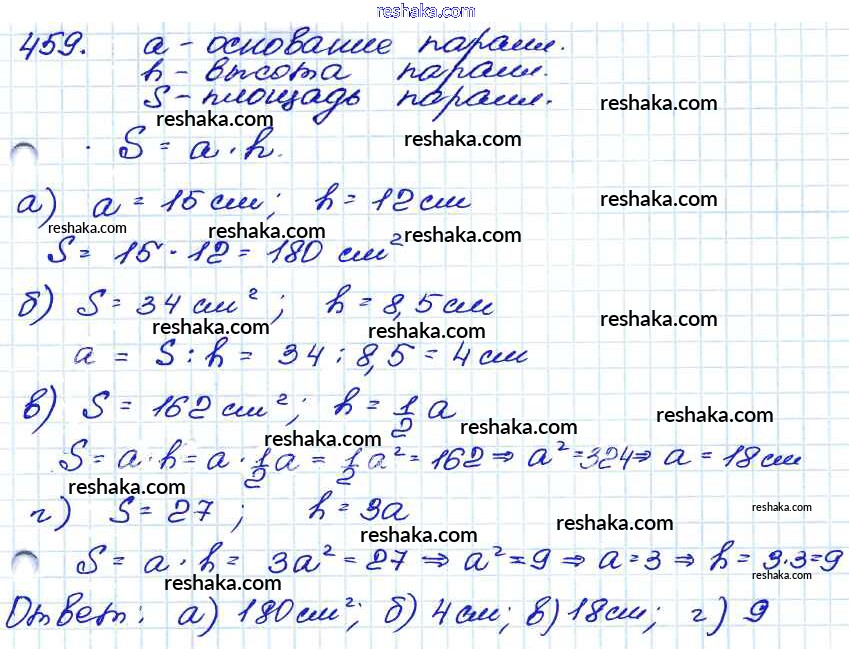 reshaka.com
459. a - основание паралл.
h - высота паралл.
S - площадь паралл.
reshaka.com
reshaka.com
reshaka.com
S = a · h.
а) a = 15 см; h = 12 см
reshaka.com
reshaka.com
S = 15 · 12 = 180 см²
reshaka.com
reshaka.com
б) S = 34 см²; h = 8,5 см
reshaka.com
reshaka.com
reshaka.com
a = S : h = 34 : 8,5 = 4 см
в) S = 162 см²; h = 1/2 a
reshaka.com
reshaka.com
reshaka.com
S = a · h = a · 1/2 a = 1/2 a² = 162 ⇒ a² = 324 ⇒ a = 18 см
reshaka.com
г) S = 27; h = 3a
reshaka.com
reshaka.com
reshaka.com
S = a · h = 3a² = 27 ⇒ a² = 9 ⇒ a = 3 ⇒ h = 3·3 = 9
reshaka.com
reshaka.com
Ответ: а) 180 см²; б) 4 см; в) 18 см; г) 9